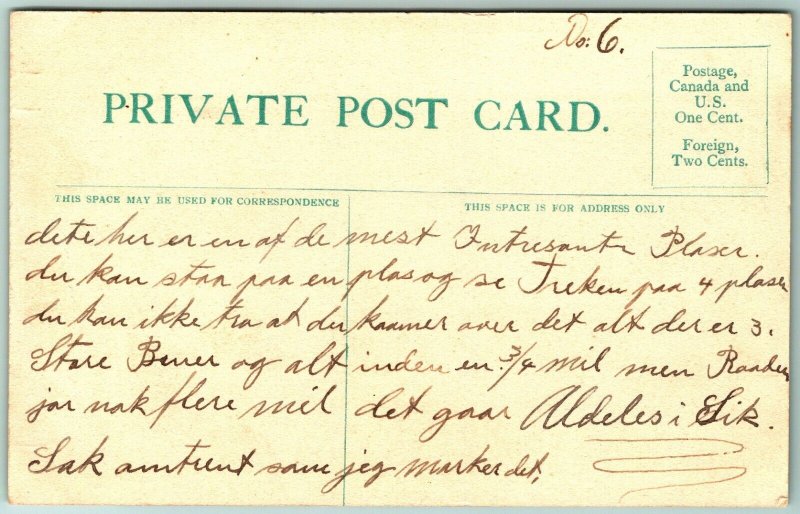 No: 6.
PRIVATE POST CARD.
Postage,
Canada and
U.S.
One Cent.
Foreign,
Two Cents.
THIS SPACE MAY BE USED FOR CORRESPONDENCE
THIS SPACE IS FOR ADDRESS ONLY
dete her er en af de mest Intresante Plaser.
du kan staa paa en plas og se Treken paa 4 plaser
du kan ikke tro at du kaamer over det alt der er 3.
Store Bruer og alt inden en 3/4 mil men Raaden
jør nok flere mil det gaar Aldeles i Sik.
Sak amtrent som jeg marker det.